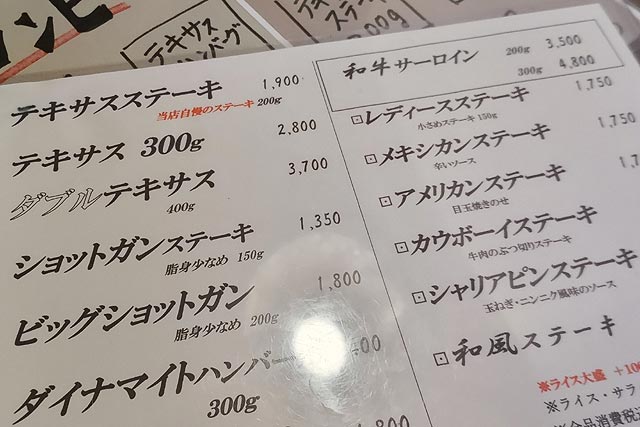 テキサス
ハンバーグ
テキサスステーキ 1,900
当店自慢のステーキ 200g
テキサス 300g 2,800
ダブルテキサス 3,700
400g
ショットガンステーキ 1,350
脂身少なめ 150g
ビッグショットガン 1,800
脂身少なめ 200g
ダイナマイトハンバー
300g
和牛サーロイン 200g 3,500
300g 4,800
⊡レディースステーキ 1,750
小さめステーキ 150g
⊡メキシカンステーキ 1,750
辛いソース
⊡アメリカンステーキ
目玉焼きのせ
⊡カウボーイステーキ
牛肉のぶつ切りステーキ
⊡シャリアピンステーキ
玉ねぎ・ニンニク風味のソース
⊡和風ステーキ
※ライス大盛 +10
※ライス・サラ